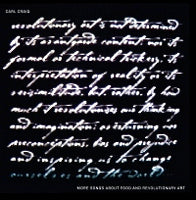 CARL CRAIG
revolutionary art is not determined
by its avantgarde content, nor its
formal or technical trickery, its
interpretation of reality or its
verisimilitude, but rather, by how
much it revolutionises our thinking
and imagination; overturning our
preconceptions, bias and prejudice
and inspiring us to change
ourselves and the world
MORE SONGS ABOUT FOOD AND REVOLUTIONARY ART